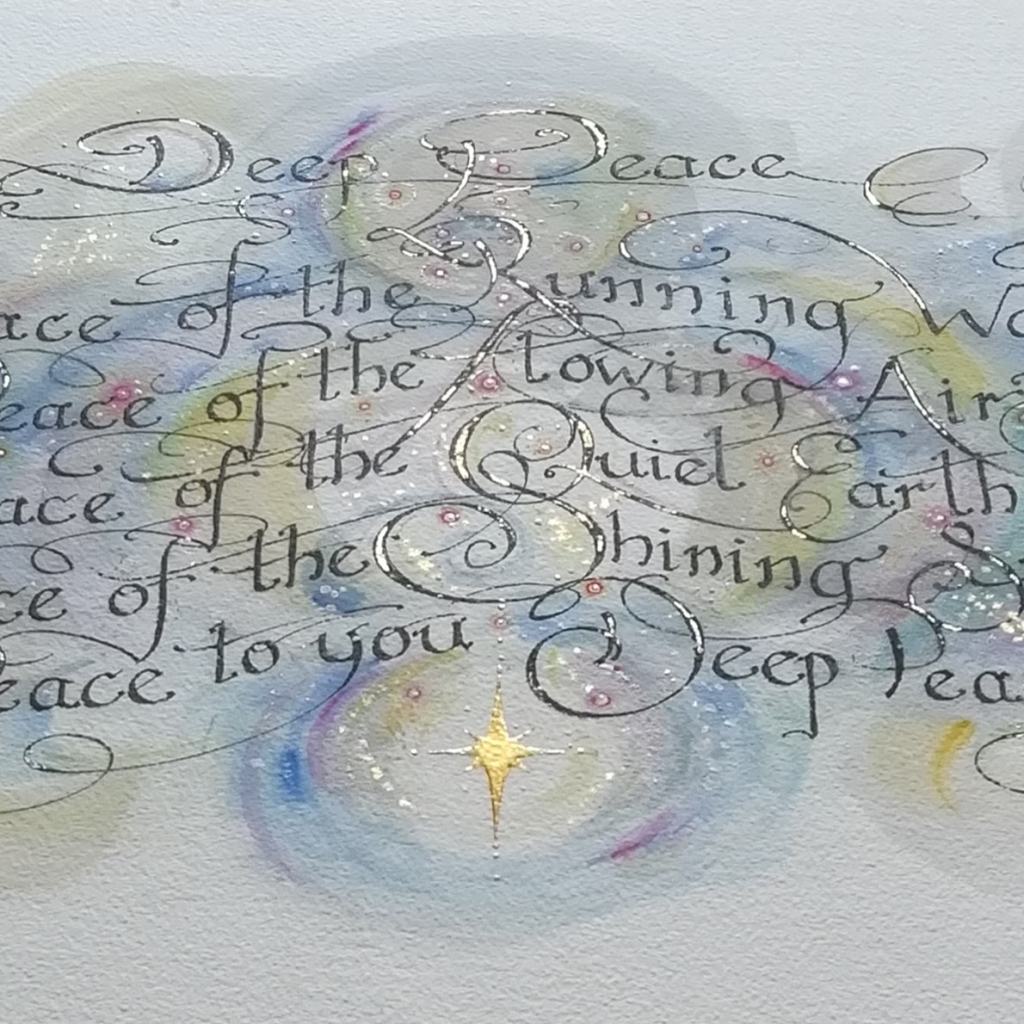 Deep Peace
ace of the Running Wa
eace of the flowing Air
ace of the Quiet Earth
ce of the Shining S
eace to you Deep Pea